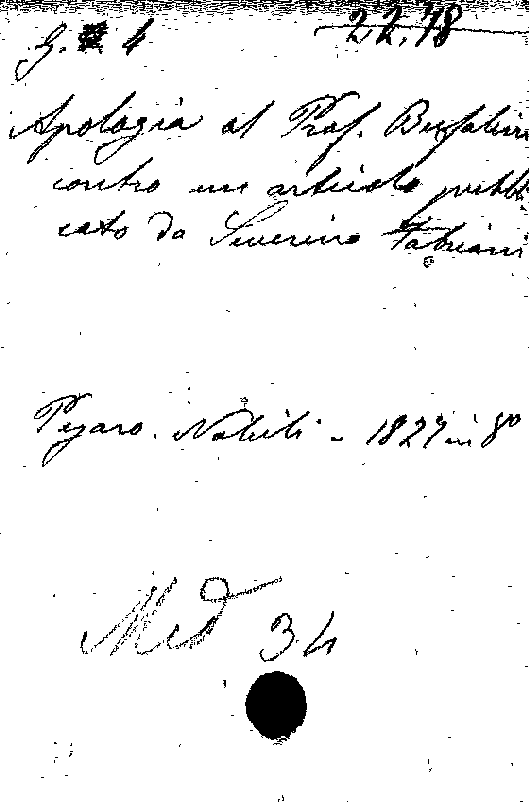 G. 4 22.78
Apologia al Prof. Bufalin
contro un articolo pubbli
cato da Severino Fabriani
Pesaro. Nobili - 1827 in 8º
Med 34